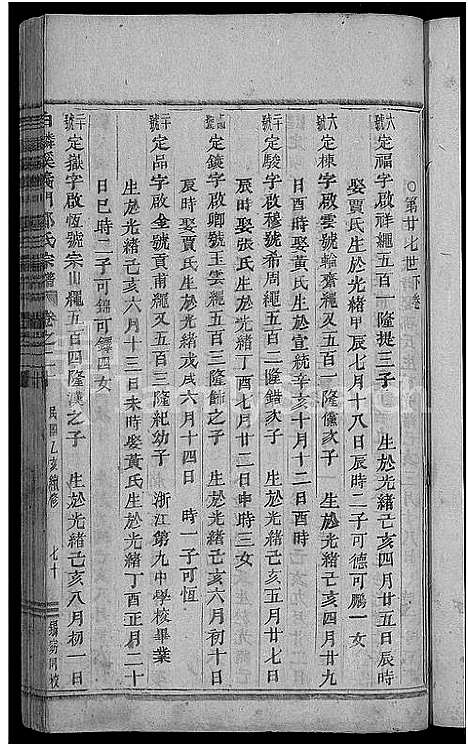 ○第廿七世下卷
六號定福字啟祥繩五百一隆提三子　生於光緒己亥四月廿五日辰時
娶賈氏生於光緒甲辰七月十八日辰時二子可德可鵬一女
六號定棟字啟雲號輪齋繩又五百一隆儀次子　生於光緒己亥四月廿九
日酉時娶黃氏生於宣統辛亥十月十二日酉時
二號定駿字啟穆號希周繩五百二隆錯次子　生於光緒己亥五月廿七日
辰時娶張氏生於光緒辛丑七月廿二日申時三女
定鏡字啟卿號玉雲繩五百三隆飾之子　生於光緒己亥六月初十日
辰時娶賈氏生於光緒戊戌六月十四日　時一子可恆
二號定品字啟全號貢甫繩又五百三隆紀幼子　浙江第九中學校畢業
生於光緒己亥六月十三日未時娶黃氏生於光緒丁酉正月二十
日巳時二子可錦可鐸四女
二號定嶽字啟恆號宗山繩五百四隆漢之子　生於光緒己亥八月初一日
白麟溪義門鄭氏宗譜　卷之二　民國乙亥續修　七十